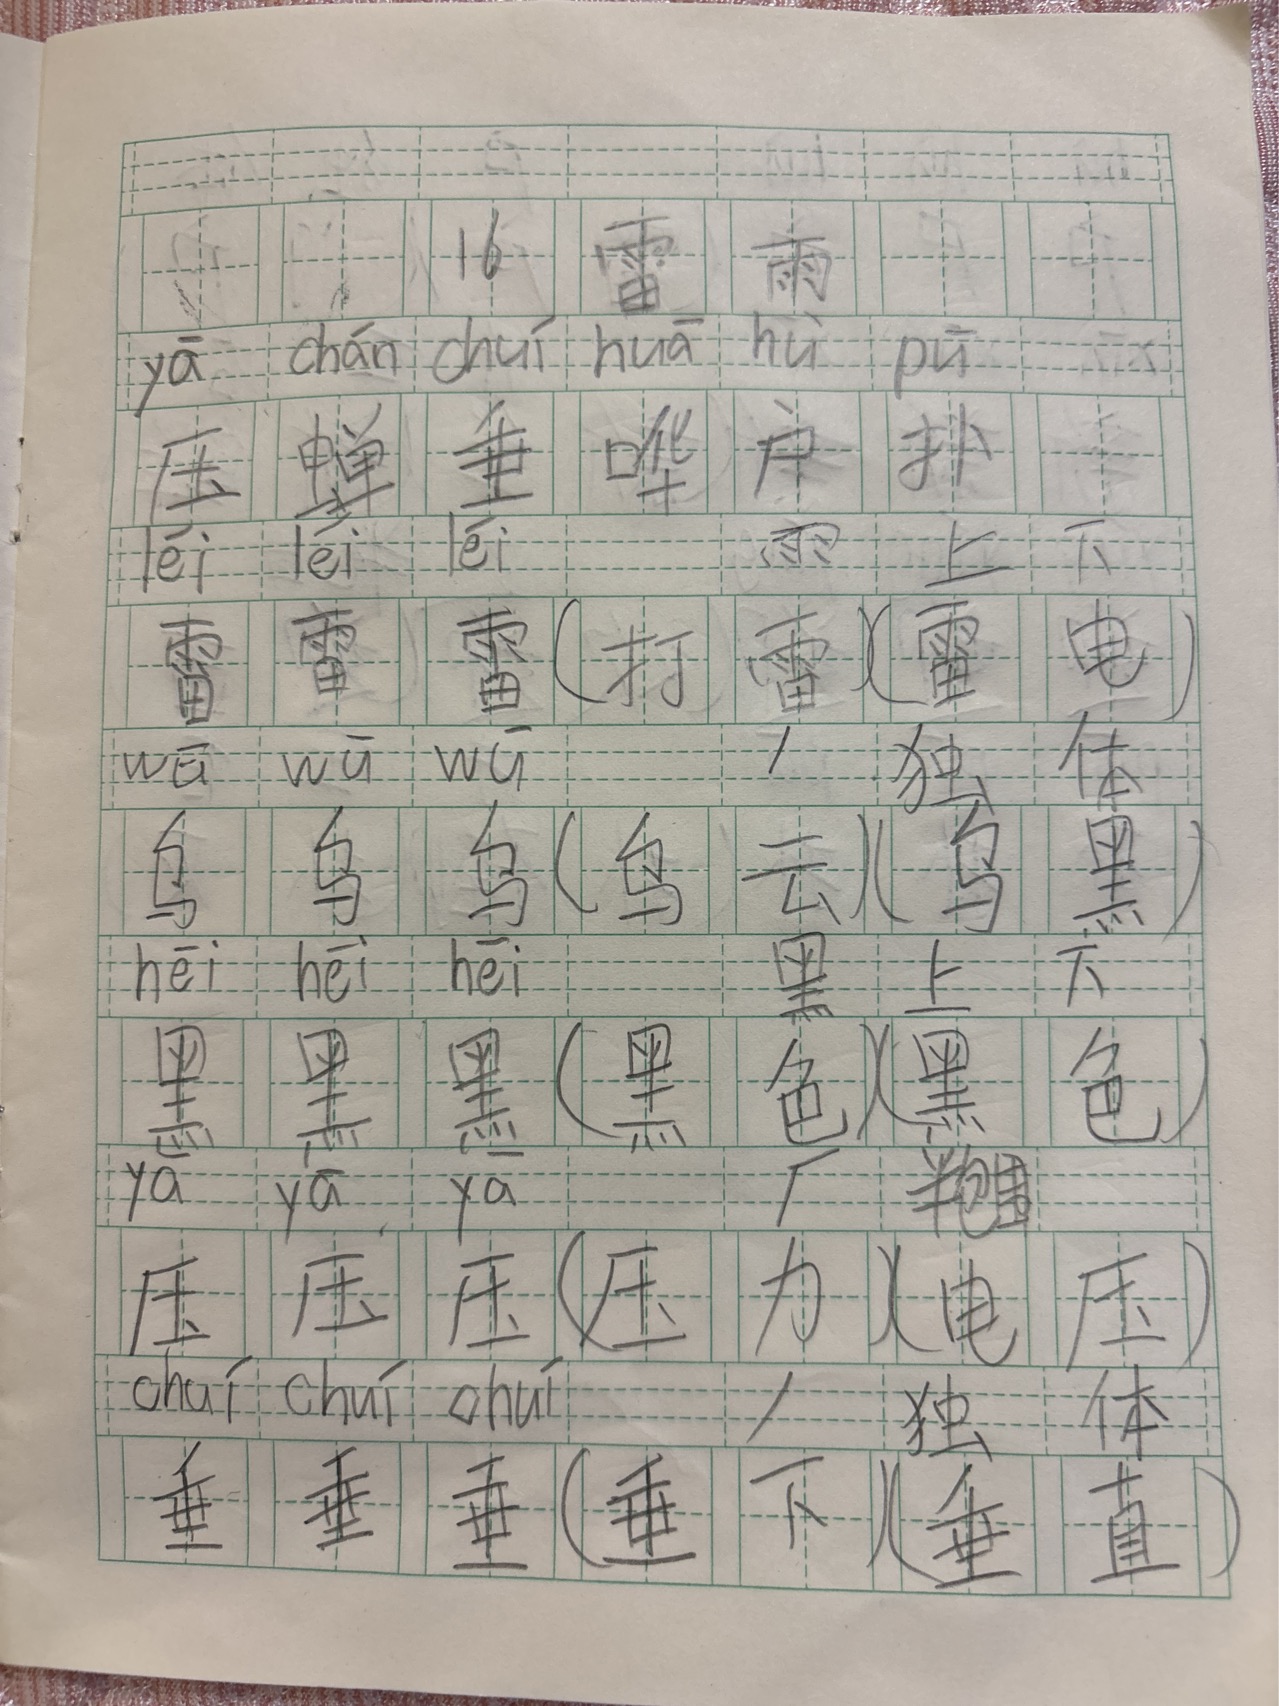 16 雷 雨
yā chán chuí huā hù pū
压 蝉 垂 哗 户 扑
léi léi léi 雨 上 下
雷 雷 雷 (打 雷)(雷 电)
wū wū wū 丿 独 体
乌 乌 乌 (乌 云)(乌 黑)
hēi hēi hēi 黑 上 下
黑 黑 黑 (黑 色)(黑 色)
yā yā yā 厂
压 压 压 (压 力)(电 压)
chuí chuí chuí 丿 独 体
垂 垂 垂 (垂 下)(垂 直)